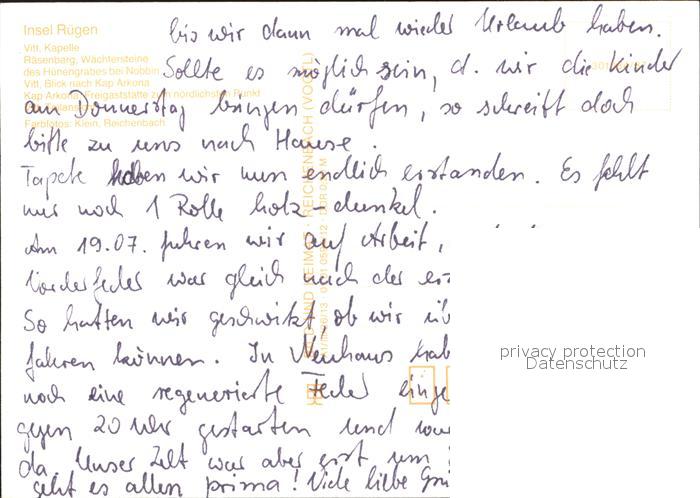 Insel Rügen
Vitt, Kapelle
Räsenberg, Wächtersteine
des Hünengrabes bei Nobbin
Vitt, Blick nach Kap Arkona
Kap Arkona, Freigaststätte zum nördlichsten Punkt
Farbfotos: Klein, Reichenbach
bis wir dann mal wieder Urlaub haben.
Sollte es möglich sein, d. wir die Kinder
am Donnerstag bringen dürfen, so schreibt doch
bitte zu uns nach Hause.
Tapete haben wir nun endlich erstanden. Es fehlt
nur noch 1 Rolle holz-dunkel.
Am 19.07. fuhren wir auf Arbeit,
Vorderfeder war gleich nach der
So hatten wir geschwitzt, ob wir
fahren können. In Neuhaus
noch eine regenerierte Feder
gegen 20 Uhr gestarten und
da. Unser Zelt war aber erst um
geht es allen prima! Viele liebe
REICHENBACH (VOGTL)
privacy protection
Datenschutz